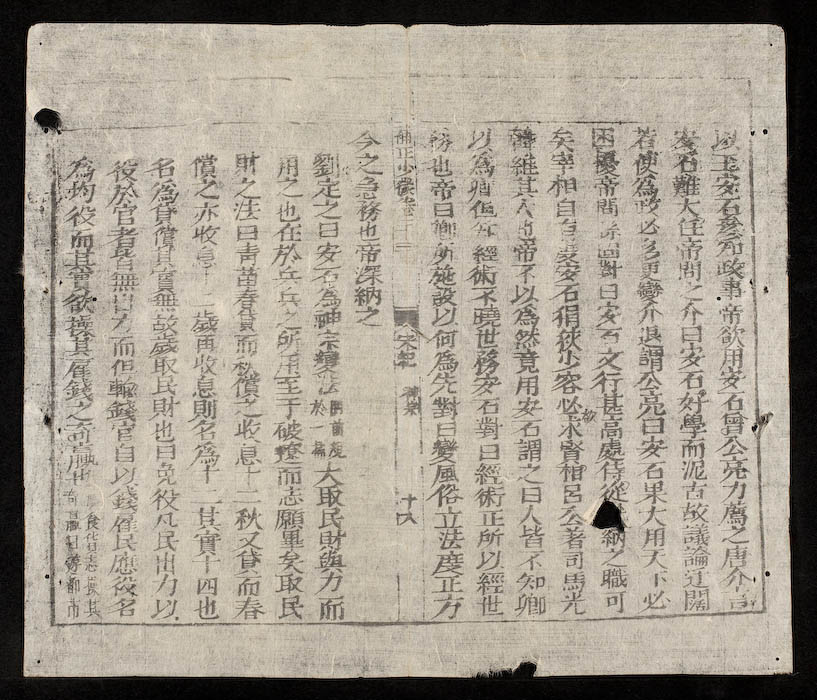 以王安石參知政事帝欲用安石曾公亮力薦之唐介言
安石難大任帝問之介曰安石好學而泥古故議論迂闊
若使為政必多更變介退謂公亮曰安石果大用天下必
困擾帝問孫固對曰安石文行甚高處侍從獻納之職可
矣宰相自有度安石狷狹少容必求賢相呂公著司馬光
韓維其人也帝不以為然竟用安石謂之曰人皆不知卿
以為卿但知經術不曉世務安石對曰經術正所以經世
務也帝曰卿所施設以何為先對曰變風俗立法度正方
少微 宋紀 神宗
今之急務也帝深納之
劉定之曰安石為神宗變法 大取民財與力而
用之也在於兵兵之所用至于破遼而志願畢矣取民
財之法曰靑苗春貸而秋償之收息十二秋又貸而春
償之亦收息十二歲再收息則名為十二其實十四也
名為貸償其實無故歲取民財也曰免役凡民出力以
役於官者皆無出力而但輸錢官自以錢雇民應役名
為均役而其實欲攘其雇錢之奇贏也 食貨志 其奇贏日游都市